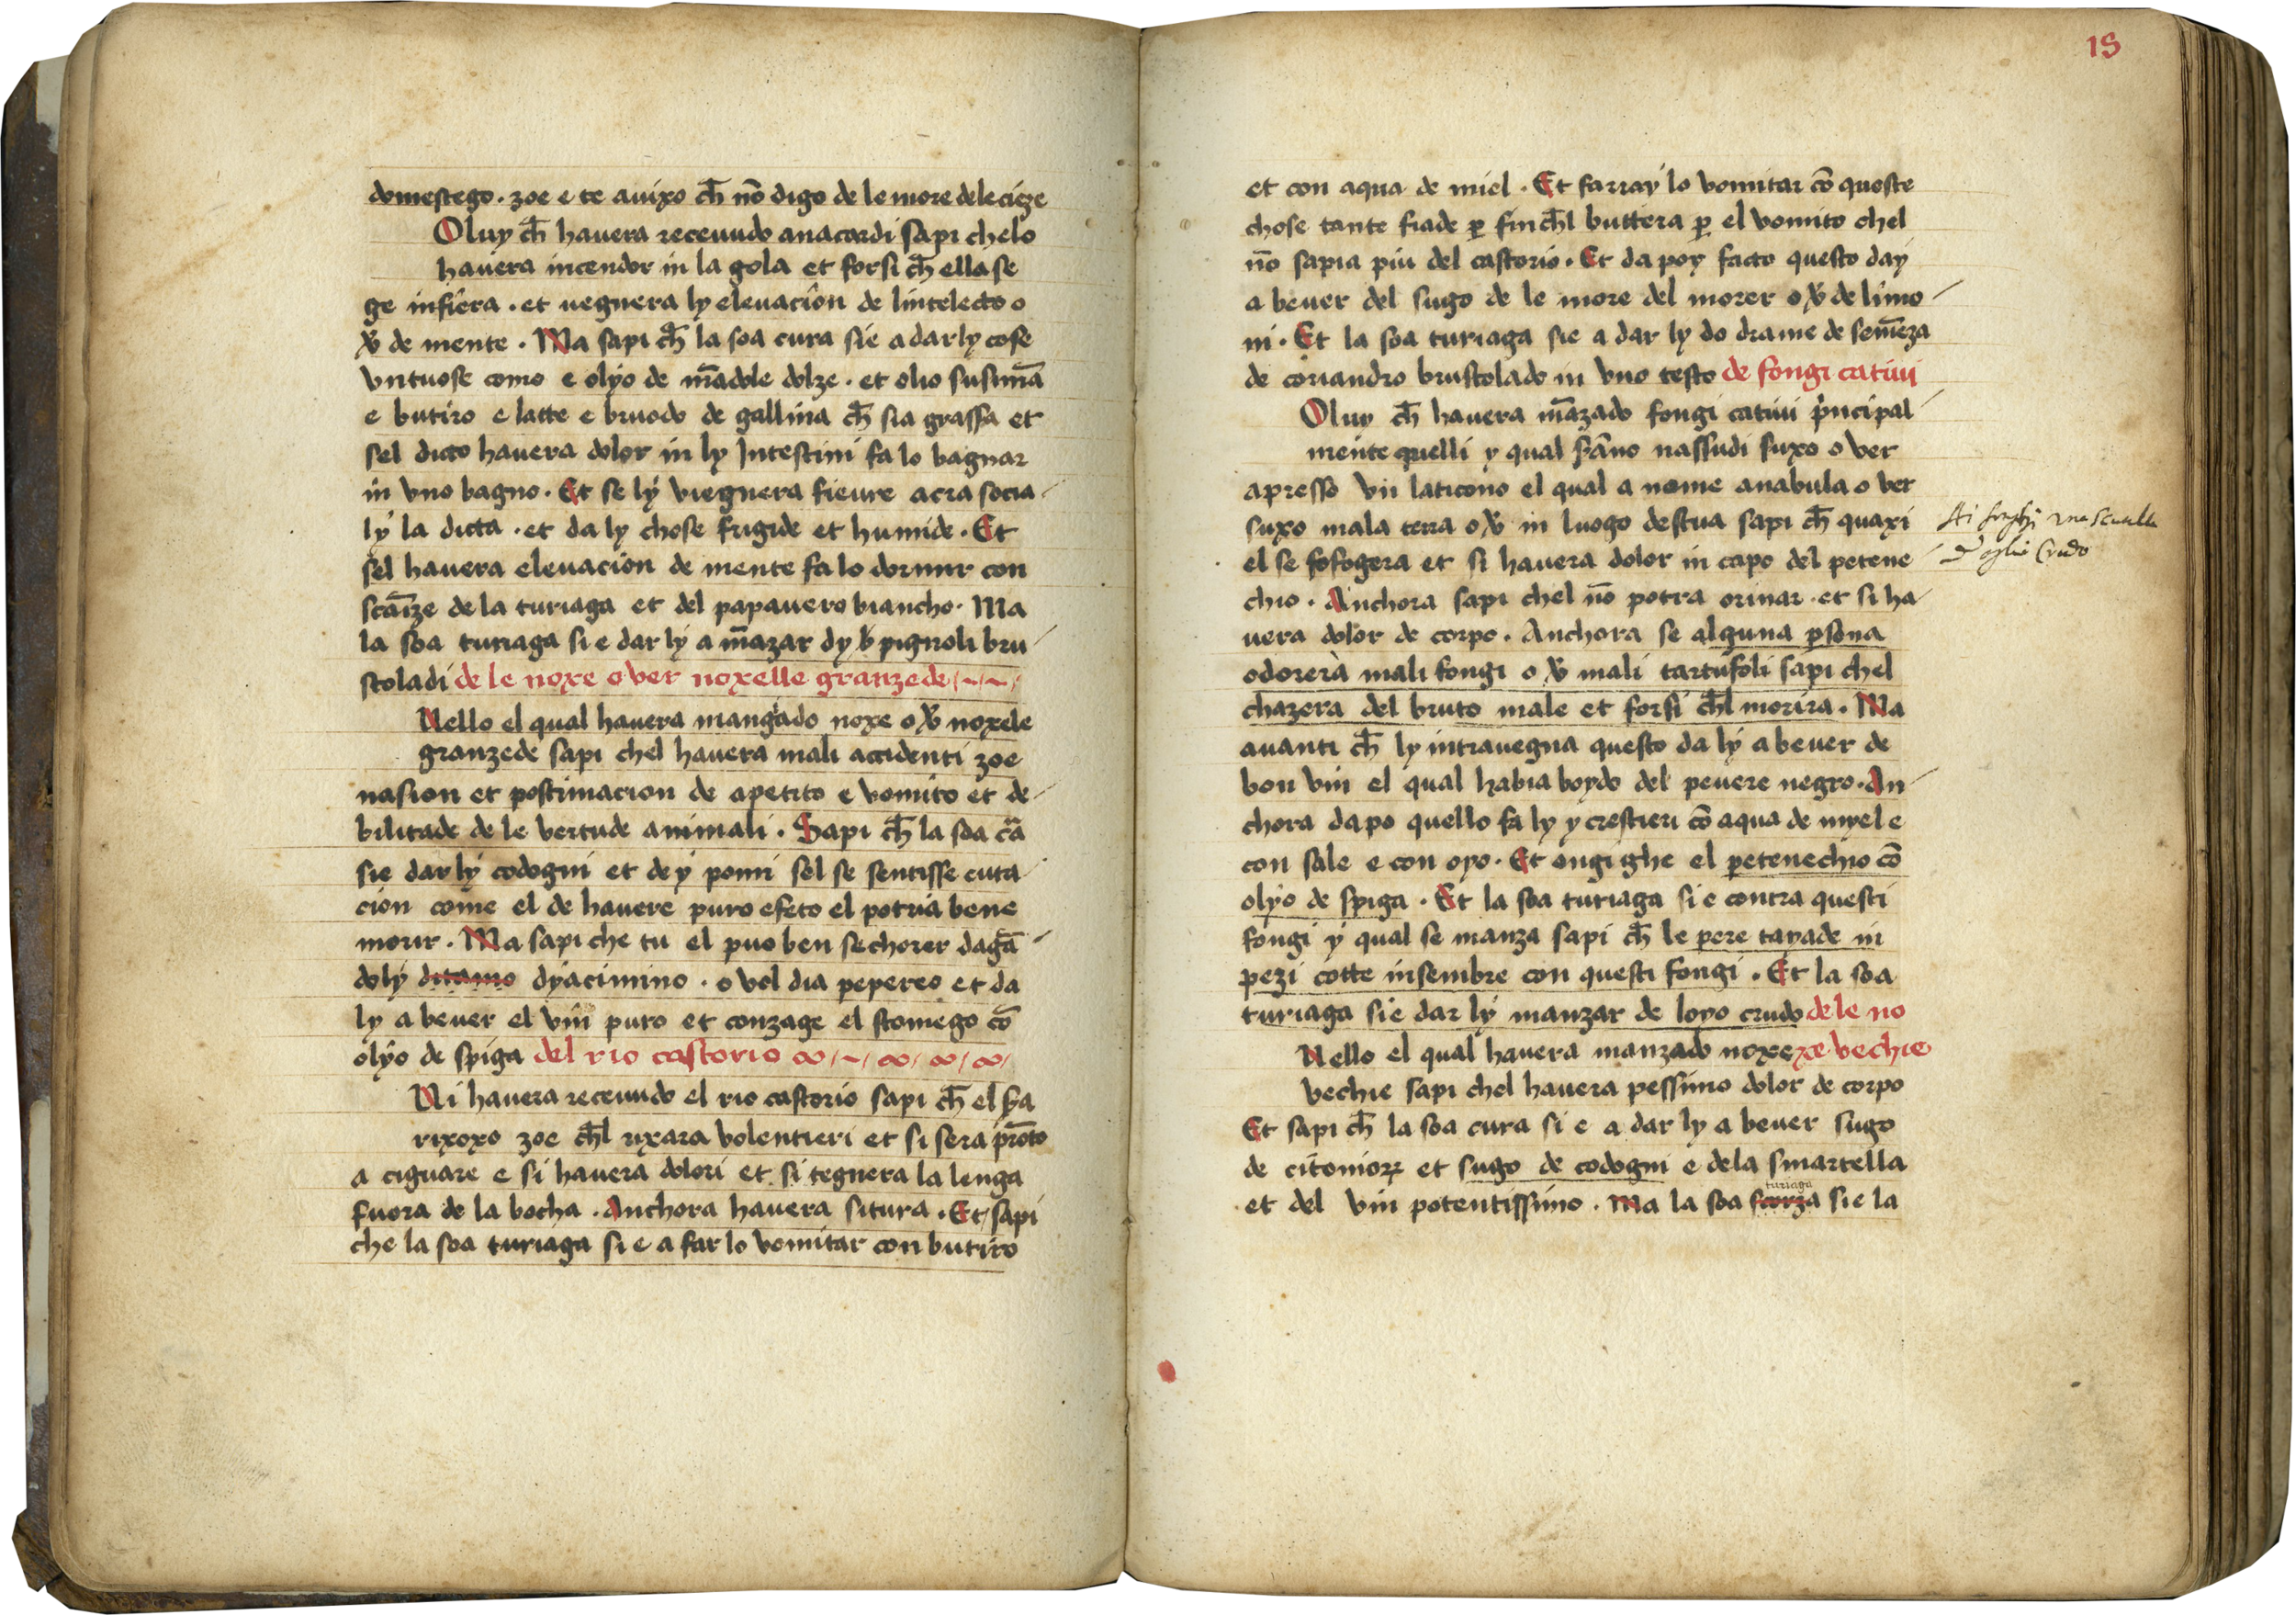 domestego. zoe e te auixo ch̄ nō digo de le more dele cieze
Oluy ch̄ hauera receuudo anacardi sapi chelo
hauera incendor in la gola et forsi ch̄ ella se
ge infiera. et uegnera ly eleuacion de lintelecto o
v̄ de mente. Ma sapi ch̄ la soa cura sie a dar ly cose
vntuose como e olyo de mādole dolze. et olio susimā
e butiro e latte e bruodo de gallina ch̄ sia grassa et
sel dicto hauera dolor in ly Intestini fa lo bagnar
in vno bagno. Et se lẏ viegnera fieure acra socia
lẏ la dicta. et da ly chose frigide et humide. Et
sel hauera eleuacion de mente fa lo dormir con
scāize de la turiaga et del papauero biancho. Ma
la soa turiaga si e dar lẏ a māzar dy pignoli bru
stoladi de le noxe over noxelle granzede
Nello el qual hauera mangado noxe o v̄ noxele
granzede sapi chel hauera mali accidenti zoe
nasion et postimacion de apetito e vomito et de
bilitade de le vertude animali. Sapi ch̄ la soa cā
sie dar lẏ codogni et de ẏ pomi sel se sentisse euta
cion come el de hauere puro efeto el potria bene
morir. Ma sapi che tu el puo ben sechorer dagā
dolẏ ditamo dyacimino. o vel dia pepereo et da
ly a beuer el vin puro et conzage el stomego cō
olẏo de spiga del rio castorio
Ni hauera receuudo el rio castorio sapi ch̄ el sa
rixoxo zoe ch̄l rixara volentieri et si sera p̄nto
a ciguare e si hauera dolori et si tegnera la lenga
fuora de la bocha. Anchora hauera situra. Et sapi
che la soa turiaga si e a far lo vomitar con butiro
18
et con aqua de miel. Et farray lo vomitar cō queste
chose tante fiade p̱ fin ch̄l buttera p̱ el vomito chel
nō sapia piu del castorio. Et da poy facto questo day
a beuer del sugo de le more del morer o v̄ de limo
ni. Et la soa turiaga sie a dar ly do drame de semēza
de coriandro brustolado in vno testo de fongi catiui
Oluy ch̄ hauera māzado fongi catiui p̍ncipal
mente quelli y qual sāno nassudi suxo o ver
apresso vn laticono el qual a nome anabula o ver
suxo mala terra o v̄ in luogo destua sapi ch̄ quaxi
el se sofogera et si hauera dolor in capo del petene
chio. Anchora sapi chel nō potra orinar. et si ha
uera dolor de corpo. Anchora se alguna p̱sona
odorerà mali fongi o v̄ mali tartufoli sapi chel
chazera del bruto male et forsi ch̄l morira. Ma
auanti ch̄ ly intrauegna questo da lẏ a beuer de
bon vin el qual habia boydo del peuere negro. An
chora dapo quello fa ly y crestieri cō aqua de myel e
con sale e con oyo. Et ongi ghe el petenechio cō
olẏo de spiga. Et la soa turiaga si e contra questi
fongi ẏ qual se manza sapi ch̄ le pere tayade in
pezi cotte insembre con questi fongi. Et la soa
turiaga sie dar lẏ manzar de loyo crudo de le no
Nello el qual hauera manzado noxe xe vechie
vechie sapi chel hauera pessimo dolor de corpo
Et sapi ch̄ la soa cura si e a dar ly a beuer sugo
de citonioꝝ et sugo de codogni e dela smartella
turiaga
et del vin potentissimo. Ma la soa scorza sie la
crudo